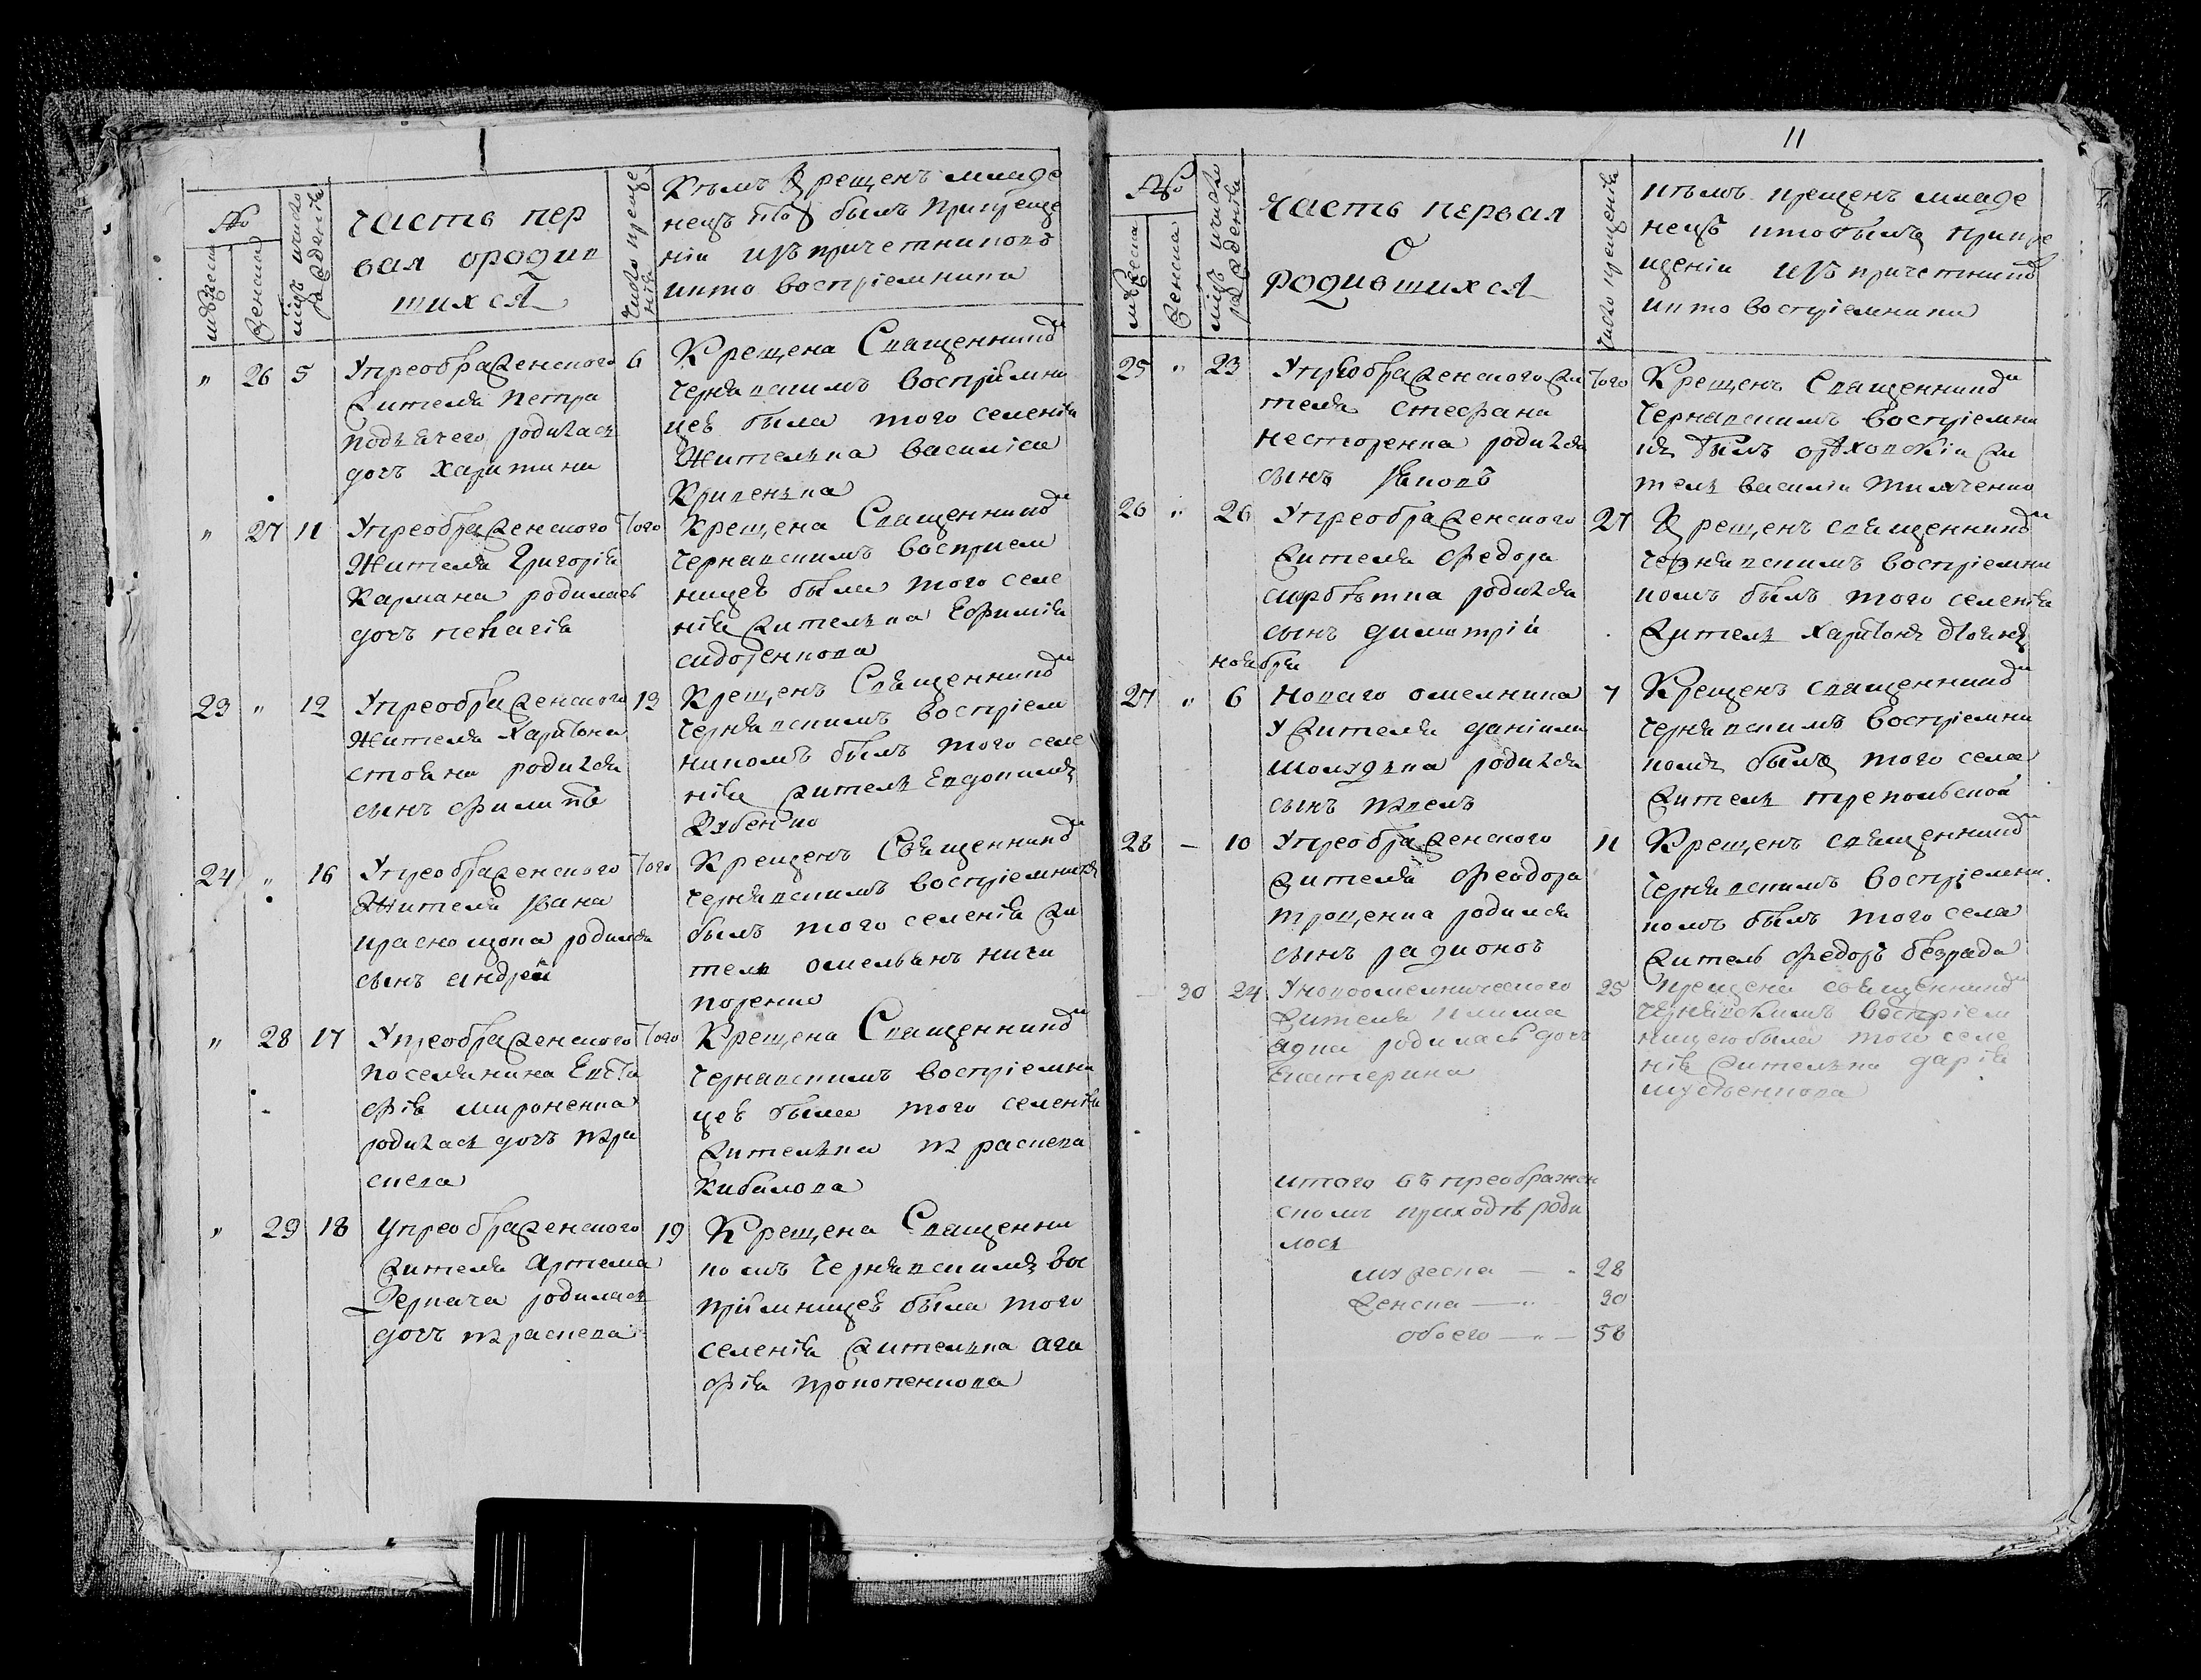 11
№
мужеска
женска
мцъ и число рожденія
часть пер
вая о родив
шихся
число креще
нія
Кѣмъ крещенъ младе
нецъ кто былъ при креще
ніи изъ причетниковъ
и кто воспріемники
" 26 5
Упреображенского
жителя петра
подлячего родилась
дочь харитина
6
Крещена Священникомъ
чернявскимъ воспріемни
цею была того селенія
жителька василиса
Кривенька
" 27 11
Упреображенского
жителя Григорія
Кармана родилась
дочь пелагія
того
Крещена Священникомъ
чернявскимъ восприем
ницею была того селе
нія жителька Ефимія
сидоренкова
23 " 12
Упреображенского
жителя харитона
стояна родился
сынъ филипъ
13
Крещенъ Священникомъ
чернявскимъ воспріем
никомъ былъ того селе
нія житель Евдокимъ
24 " 16
Упреображенского
жителя Ивана
краснощока родился
сынъ андрей
того
Крещенъ Священникомъ
чернявскимъ воспріемникъ
былъ того селенія жи
тель омельянъ ничи
поренко
" 28 17
Упреображенского
поселянина Евста
фія мироненка
родилась дочь пара
скева
того
Крещена Священникомъ
чернявскимъ воспріемни
цею была того селенія
жителька параскева
Кибалова
" 29 18
Упреображенского
жителя Артема
Деркача родилась
дочь параскева
19
Крещена Священни
комъ чернявскимъ вос
пріимницею была того
селенія жителька ага
фія прокопенкова
№
мужеска
женска
мцъ и число рожденія
часть первая
о
родившихся
число крещенія
кѣмъ крещенъ младе
нецъ и кто былъ при кре
щеніи изъ причетников
и кто воспріемники
25 " 23
Упреображенского жи
теля стефана
несторенка родился
сынъ Яковъ
того
Крещенъ Священникомъ
чернявскимъ воспріемни
къ былъ орѣховскій жи
тель василій тимченко
26 " 26
Упреображенского
жителя федора
сиробѣтка родился
сынъ димитрій
27
Крещенъ священникомъ
чернявскимъ воспріемни
комъ былъ того селенія
житель харитонъ стоянъ
ноября
27 " 6
Новаго омелника
у жителя даніила
шолудька родился
сынъ павелъ
7
Крещенъ священникомъ
чернявскимъ воспріемни
комъ былъ того села
житель трепольской
28 — 10
Упреображенского
жителя феодора
троценка родился
сынъ радионов
11
Крещенъ священникомъ
чернявскимъ воспріемни
комъ былъ того села
житель федоръ безрада
— 30 24
Уновоомелнического
жителя клима
родилась дочь
Екатерина
25
крещена священникомъ
чернявскимъ воспріем
ницею была того селе
нія жителька дарія
итого въ преображен
скомъ приходѣ роди
лось
мужеска — " 28
женска — " 30
обоего — " — 58